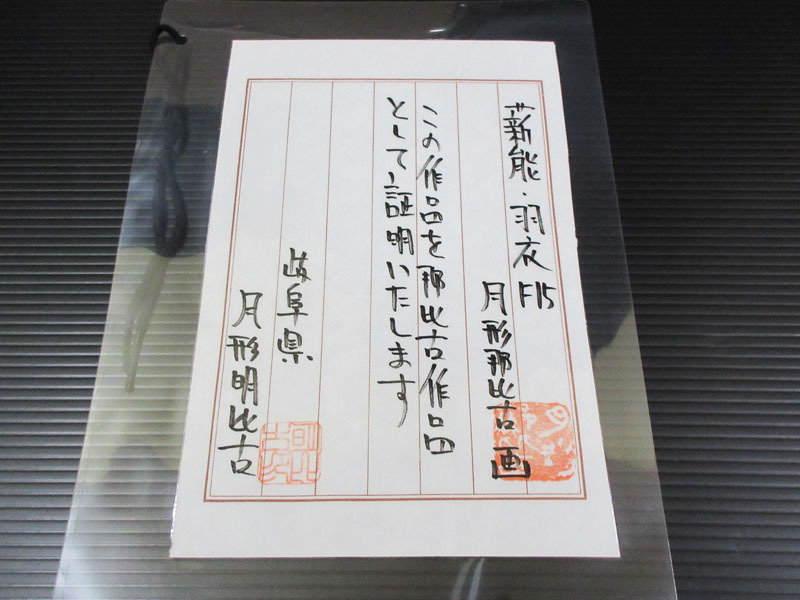 薪能・羽衣 F15
月形那比古 画
この作品を那比古作品
として証明いたします
岐阜県
月形明比古